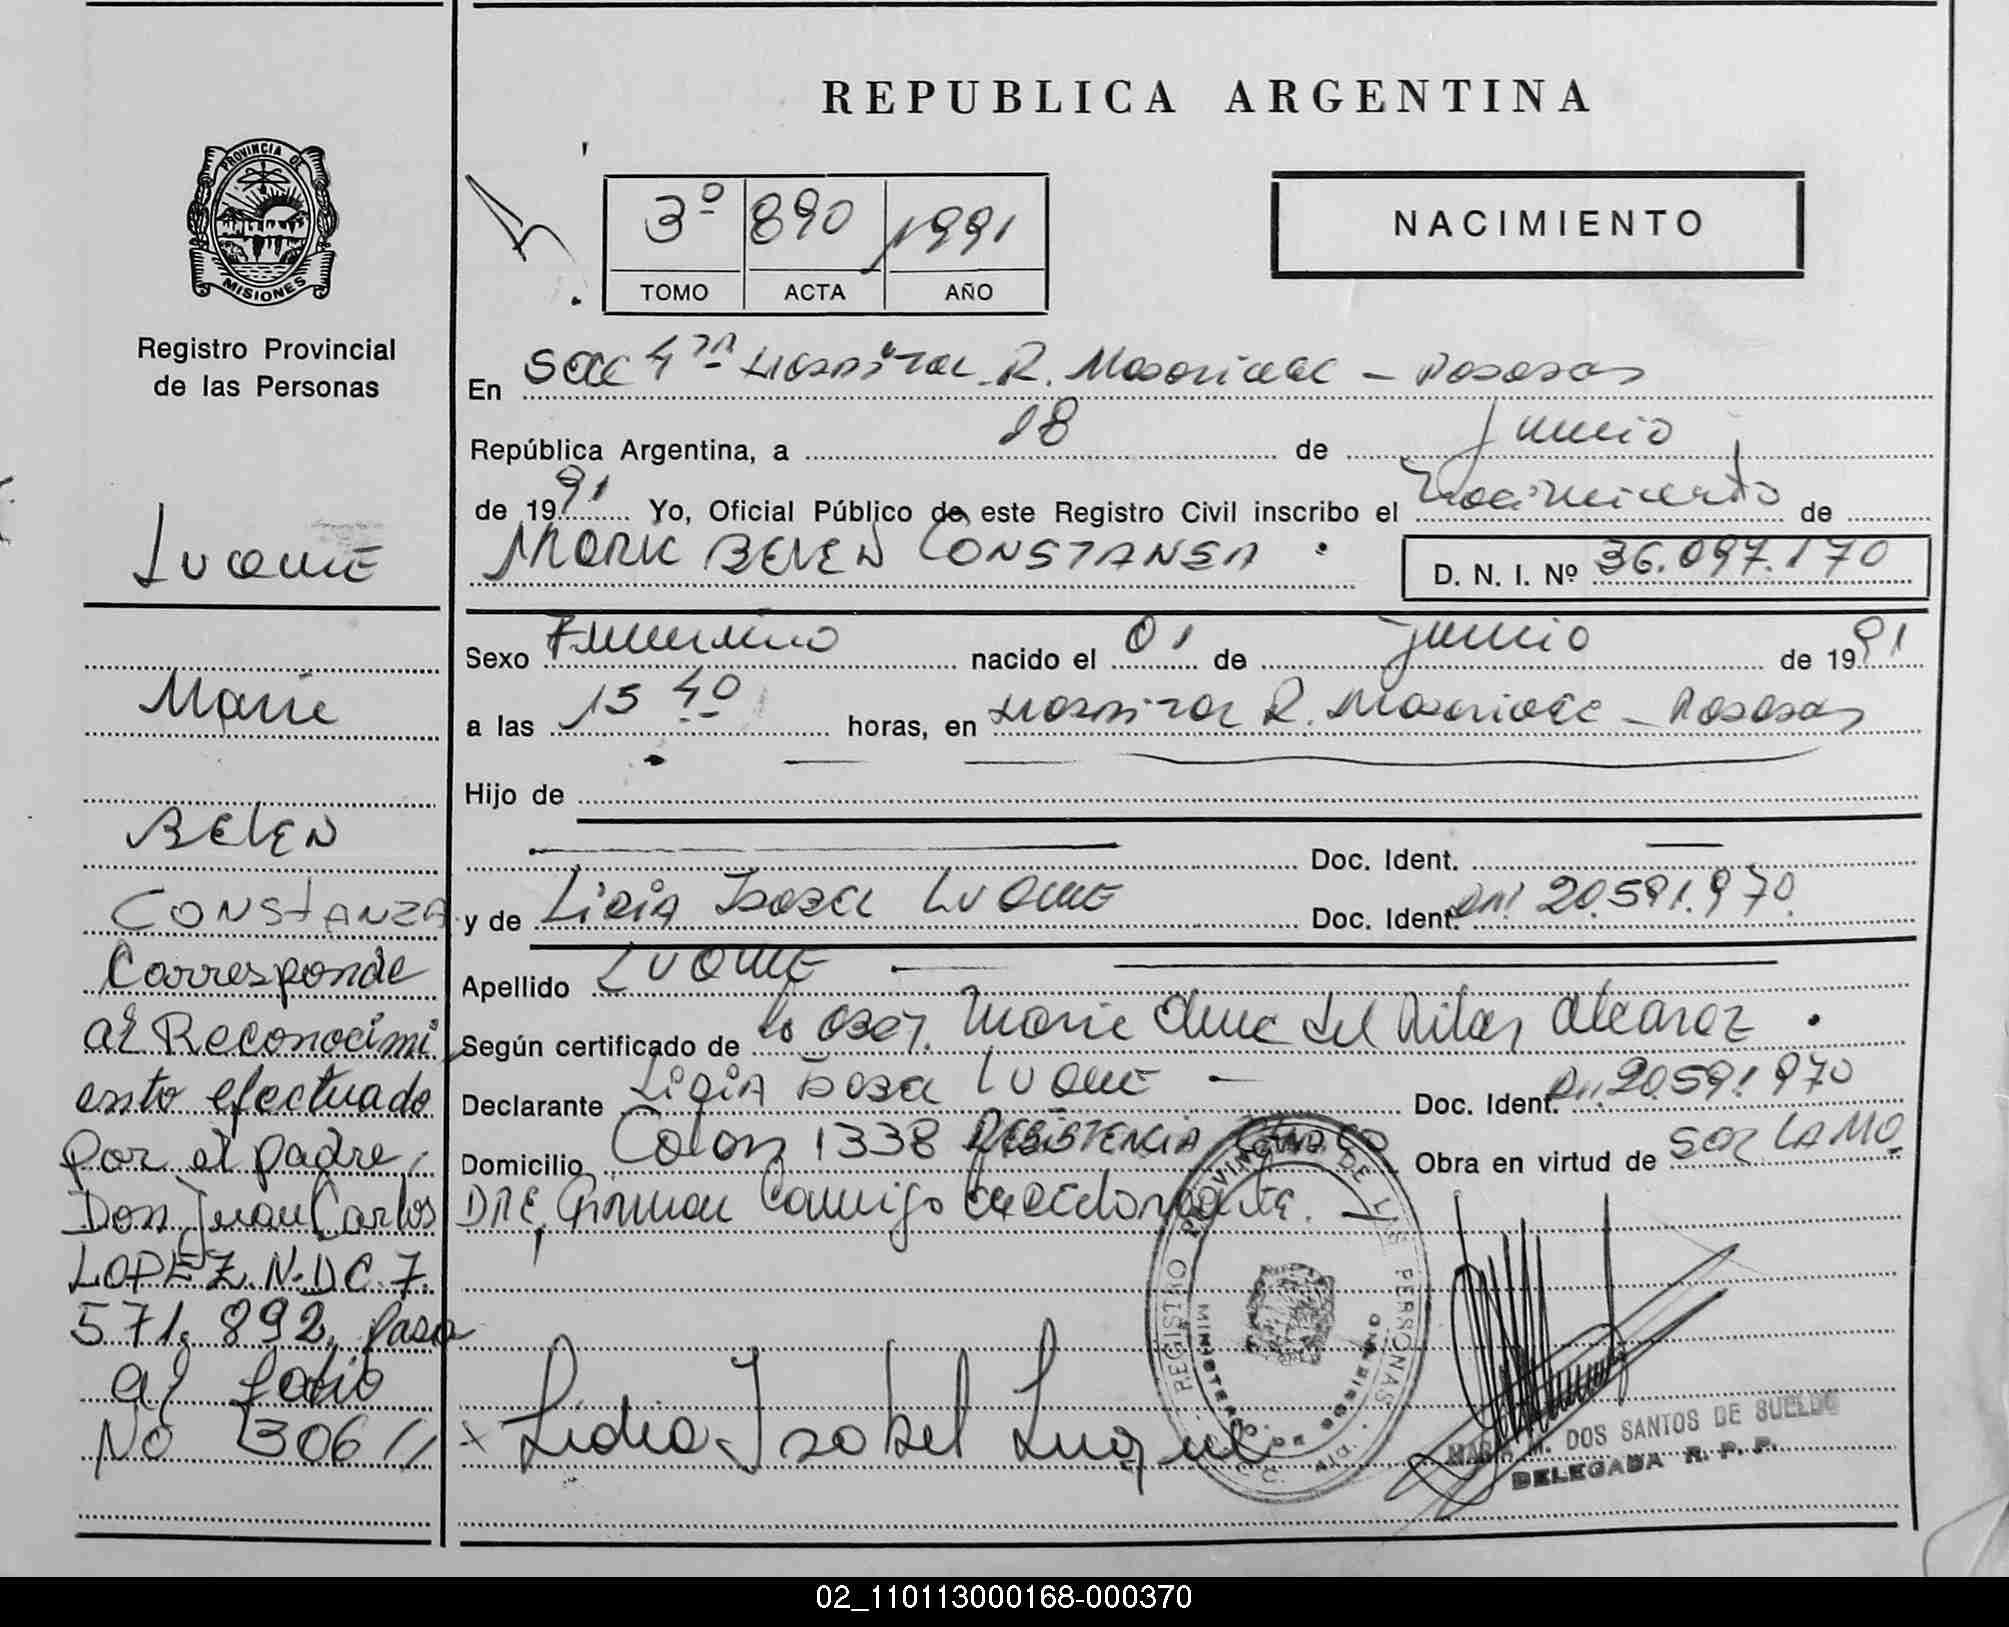 REPUBLICA ARGENTINA
PROVINCIA DE
MISIONES
Registro Provincial
de las Personas
3º 890 1991
TOMO ACTA AÑO
NACIMIENTO
En Sec 4ta Hospital R. Madariaga - Posadas
República Argentina, a 18 de Junio
de 1991 Yo, Oficial Público de este Registro Civil inscribo el Nacimiento de
MARIA BELEN CONSTANSA
D. N. I. Nº 36.097.170
Sexo Femenino nacido el 01 de Junio de 1991
a las 15 40 horas, en Hospital R. Madariaga - Posadas
Hijo de
Doc. Ident.
y de Lidia Isabel LUQUE Doc. Ident. DNI 20.591.970
Apellido LUQUE
Según certificado de la Obst. Maria del Pilar Alcaraz
Declarante Lidia Isabel LUQUE Doc. Ident. DNI 20.591.970
Domicilio Colon 1338 RESISTENCIA CHACO Obra en virtud de SER LA MA
DRE, Firman Conmigo
Lidia Isabel Luque
REGISTRO PROVINCIAL DE LAS PERSONAS
MINISTERIO DE GOBIERNO
M. DOS SANTOS DE SUELDO
DELEGADA R. P. P.
LUQUE
Maria
BELEN
CONSTANZA
Corresponde
al Reconocimi
ento efectuado
por el padre,
Don Juan Carlos
LOPEZ. N. D C. 7.
571. 892, pasa
al folio
No 306
02_110113000168-000370